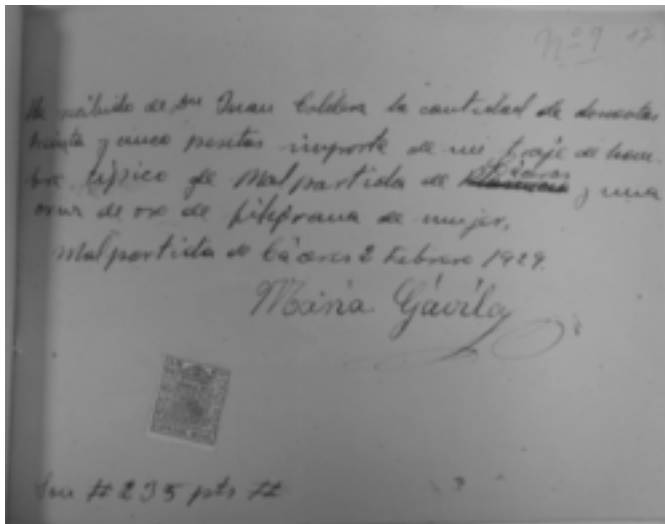 Nº 9 17
He recibido de Dn Juan Caldera la cantidad de doscientas
treinta y cinco pesetas importe de un traje de hom-
bre típico de Malpartida de Cáceres y una
cruz de oro de filigrana de mujer.
Malpartida de Cáceres 2 Febrero 1929.
Maria Gávila
Son # 235 pts #